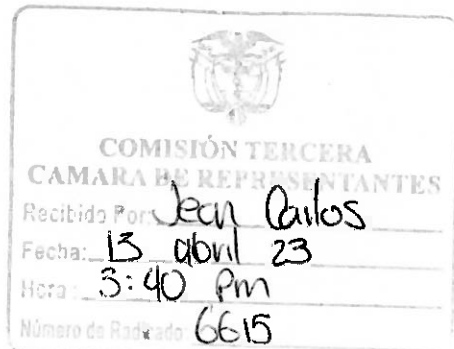 COMISIÓN TERCERA
CAMARA DE REPRESENTANTES
Recibido Por: Jean Carlos
Fecha: 13 abril 23
Hora: 3:40 Pm
Número de Radicado: 6615